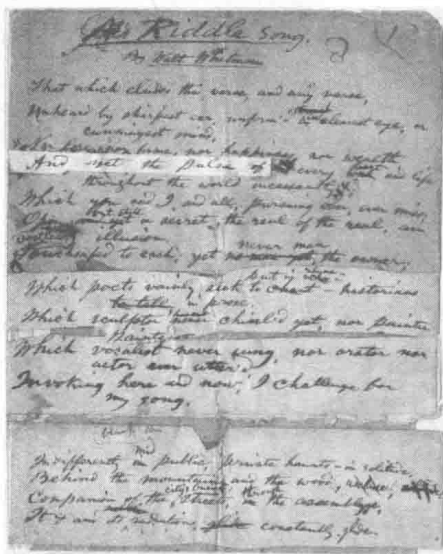 A Riddle Song.
By Walt Whitman
That which eludes this verse, and any verse,
Unheard by sharpest ear, unform'd in clearest eye, or
cunningest mind,
nor fame, nor happiness, nor wealth
And yet the pulse of every heart and life
throughout the world incessantly
Which you and I and all, pursuing ever, ever miss,
Open but still a secret, the real of the real, an
illusion,
Vouchsafed to each, yet never man the owner,
Which poets vainly seek to put in historians
in prose,
Which sculptor never chisel'd yet, nor painter
painted
Which vocalist never sung, nor orator nor
actor ever utter'd,
Invoking here and now, I challenge for
my song.
Indifferently, mid public private haunts—in solitude,
Behind the mountain and the wood,
Companion of the city's streets, through the assemblage,
It and its radiations constantly glide.